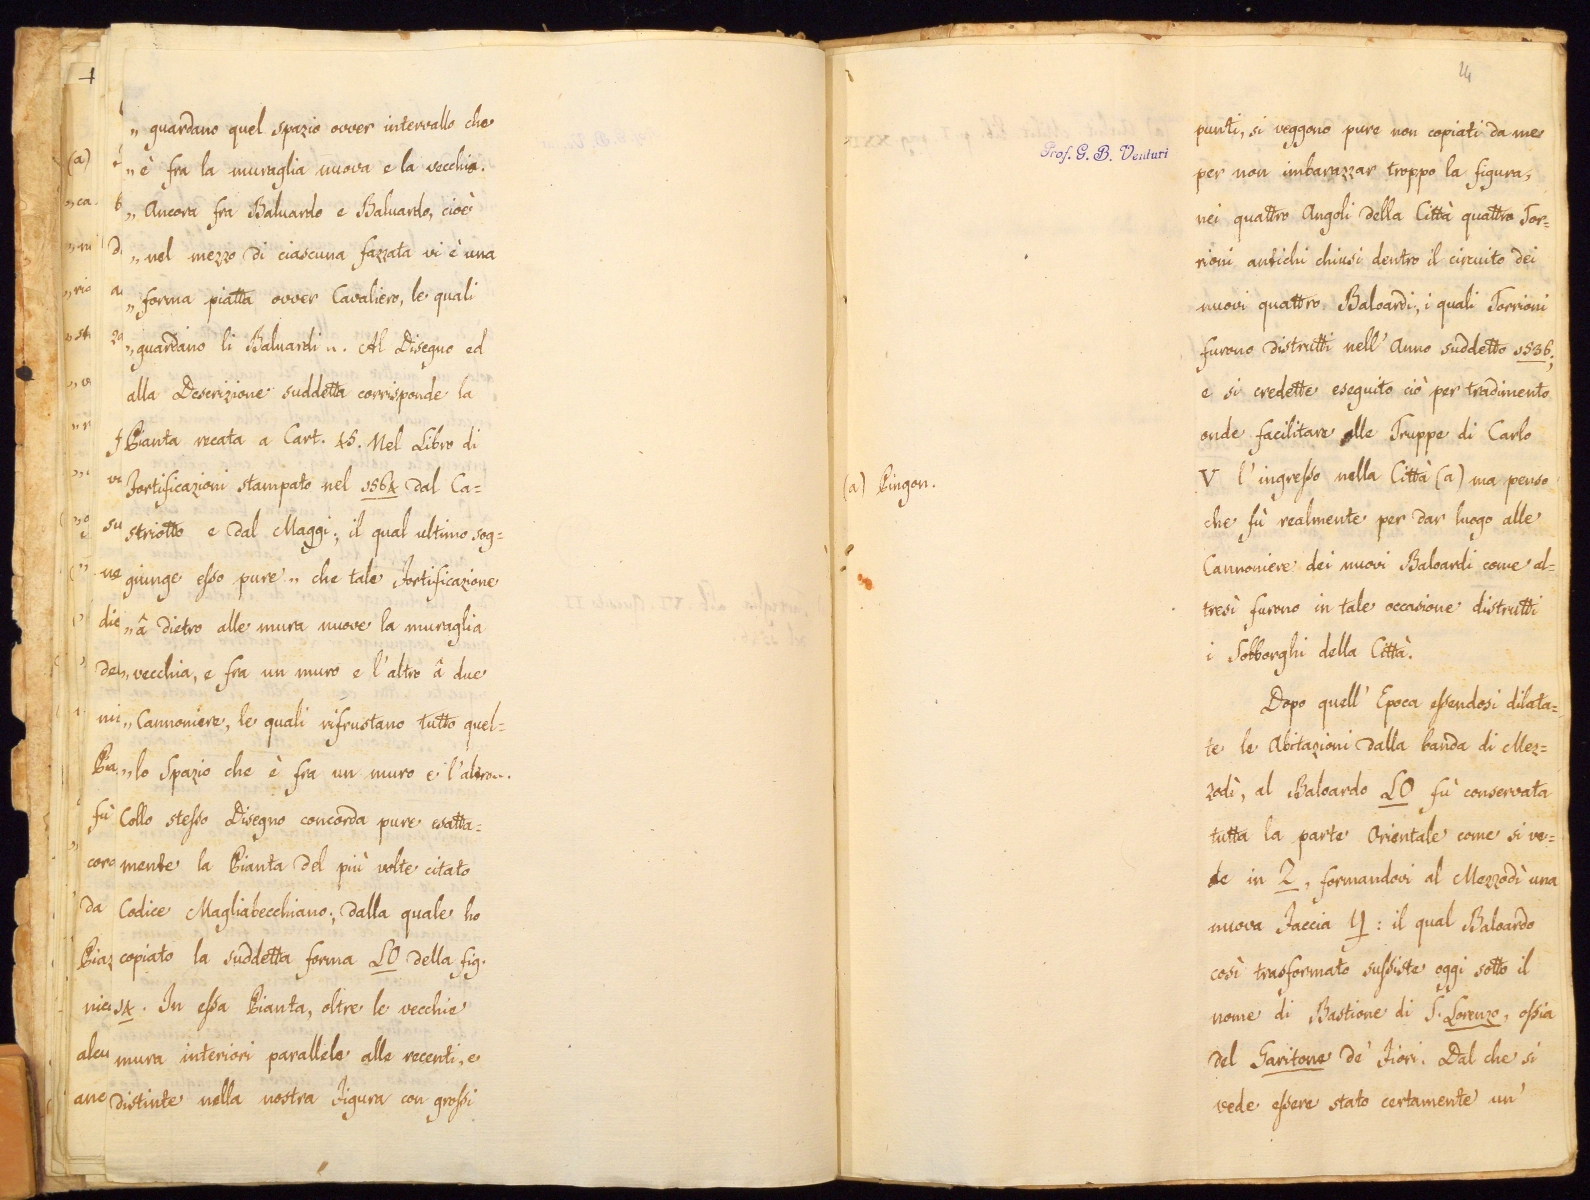 „ guardano quel spazio ovver intervallo che
„ è fra la muraglia nuova e la vecchia.
„ Ancora fra Baluardo e Baluardo, cioè
„ nel mezzo di ciascuna fazzata vi è una
„ forma piatta ovver Cavaliero, le quali
„ guardano li Baluardi „. Al Disegno ed
alla Descrizione suddetta corrisponde la
Pianta recata a Cart. 45. Nel Libro di
Fortificazioni stampato nel 1564 dal Ca=
striotto e dal Maggi; il qual ultimo sog=
giunge esso pure „ che tale Fortificazione
„ â dietro alle mura nuove la muraglia
„ vecchia, e fra un muro e l'altro â due
„ Cannoniere, le quali rifrustano tutto quel=
„ lo Spazio che è fra un muro e l'altro „.
Collo stesso Disegno concorda pure esatta=
mente la Pianta del più volte citato
Codice Magliabecchiano; dalla quale ho
copiato la suddetta forma LO della fig.
14. In essa Pianta, oltre le vecchie
mura interiori parallele alle recenti, e
distinte nella nostra Figura con grossi
24
Prof. G. B. Venturi
punti, si veggono pure non copiati da me
per non imbarazzar troppo la figura,
nei quattro Angoli della Città quattro Tor=
rioni antichi chiusi dentro il circuito dei
nuovi quattro Baloardi, i quali Torrioni
furono distrutti nell'Anno suddetto 1536;
e si credette eseguito ciò per tradimento
onde facilitare alle Truppe di Carlo
V l'ingresso nella Città (a) ma penso
che fù realmente per dar luogo alle
Cannoniere dei nuovi Baloardi come al=
tresì furono in tale occasione distrutti
i Sobborghi della Città.
Dopo quell'Epoca essendosi dilata=
te le Abitazioni dalla banda di Mez=
zodì, al Baloardo LO fù conservata
tutta la parte Orientale come si ve=
de in Z, formandovi al Mezzodì una
nuova Faccia Y: il qual Baloardo
così trasformato sussiste oggi sotto il
nome di Bastione di S. Lorenzo, ossia
del Garitone de' Fiori. Dal che si
vede essere stato certamente un'
(a) Pingon.